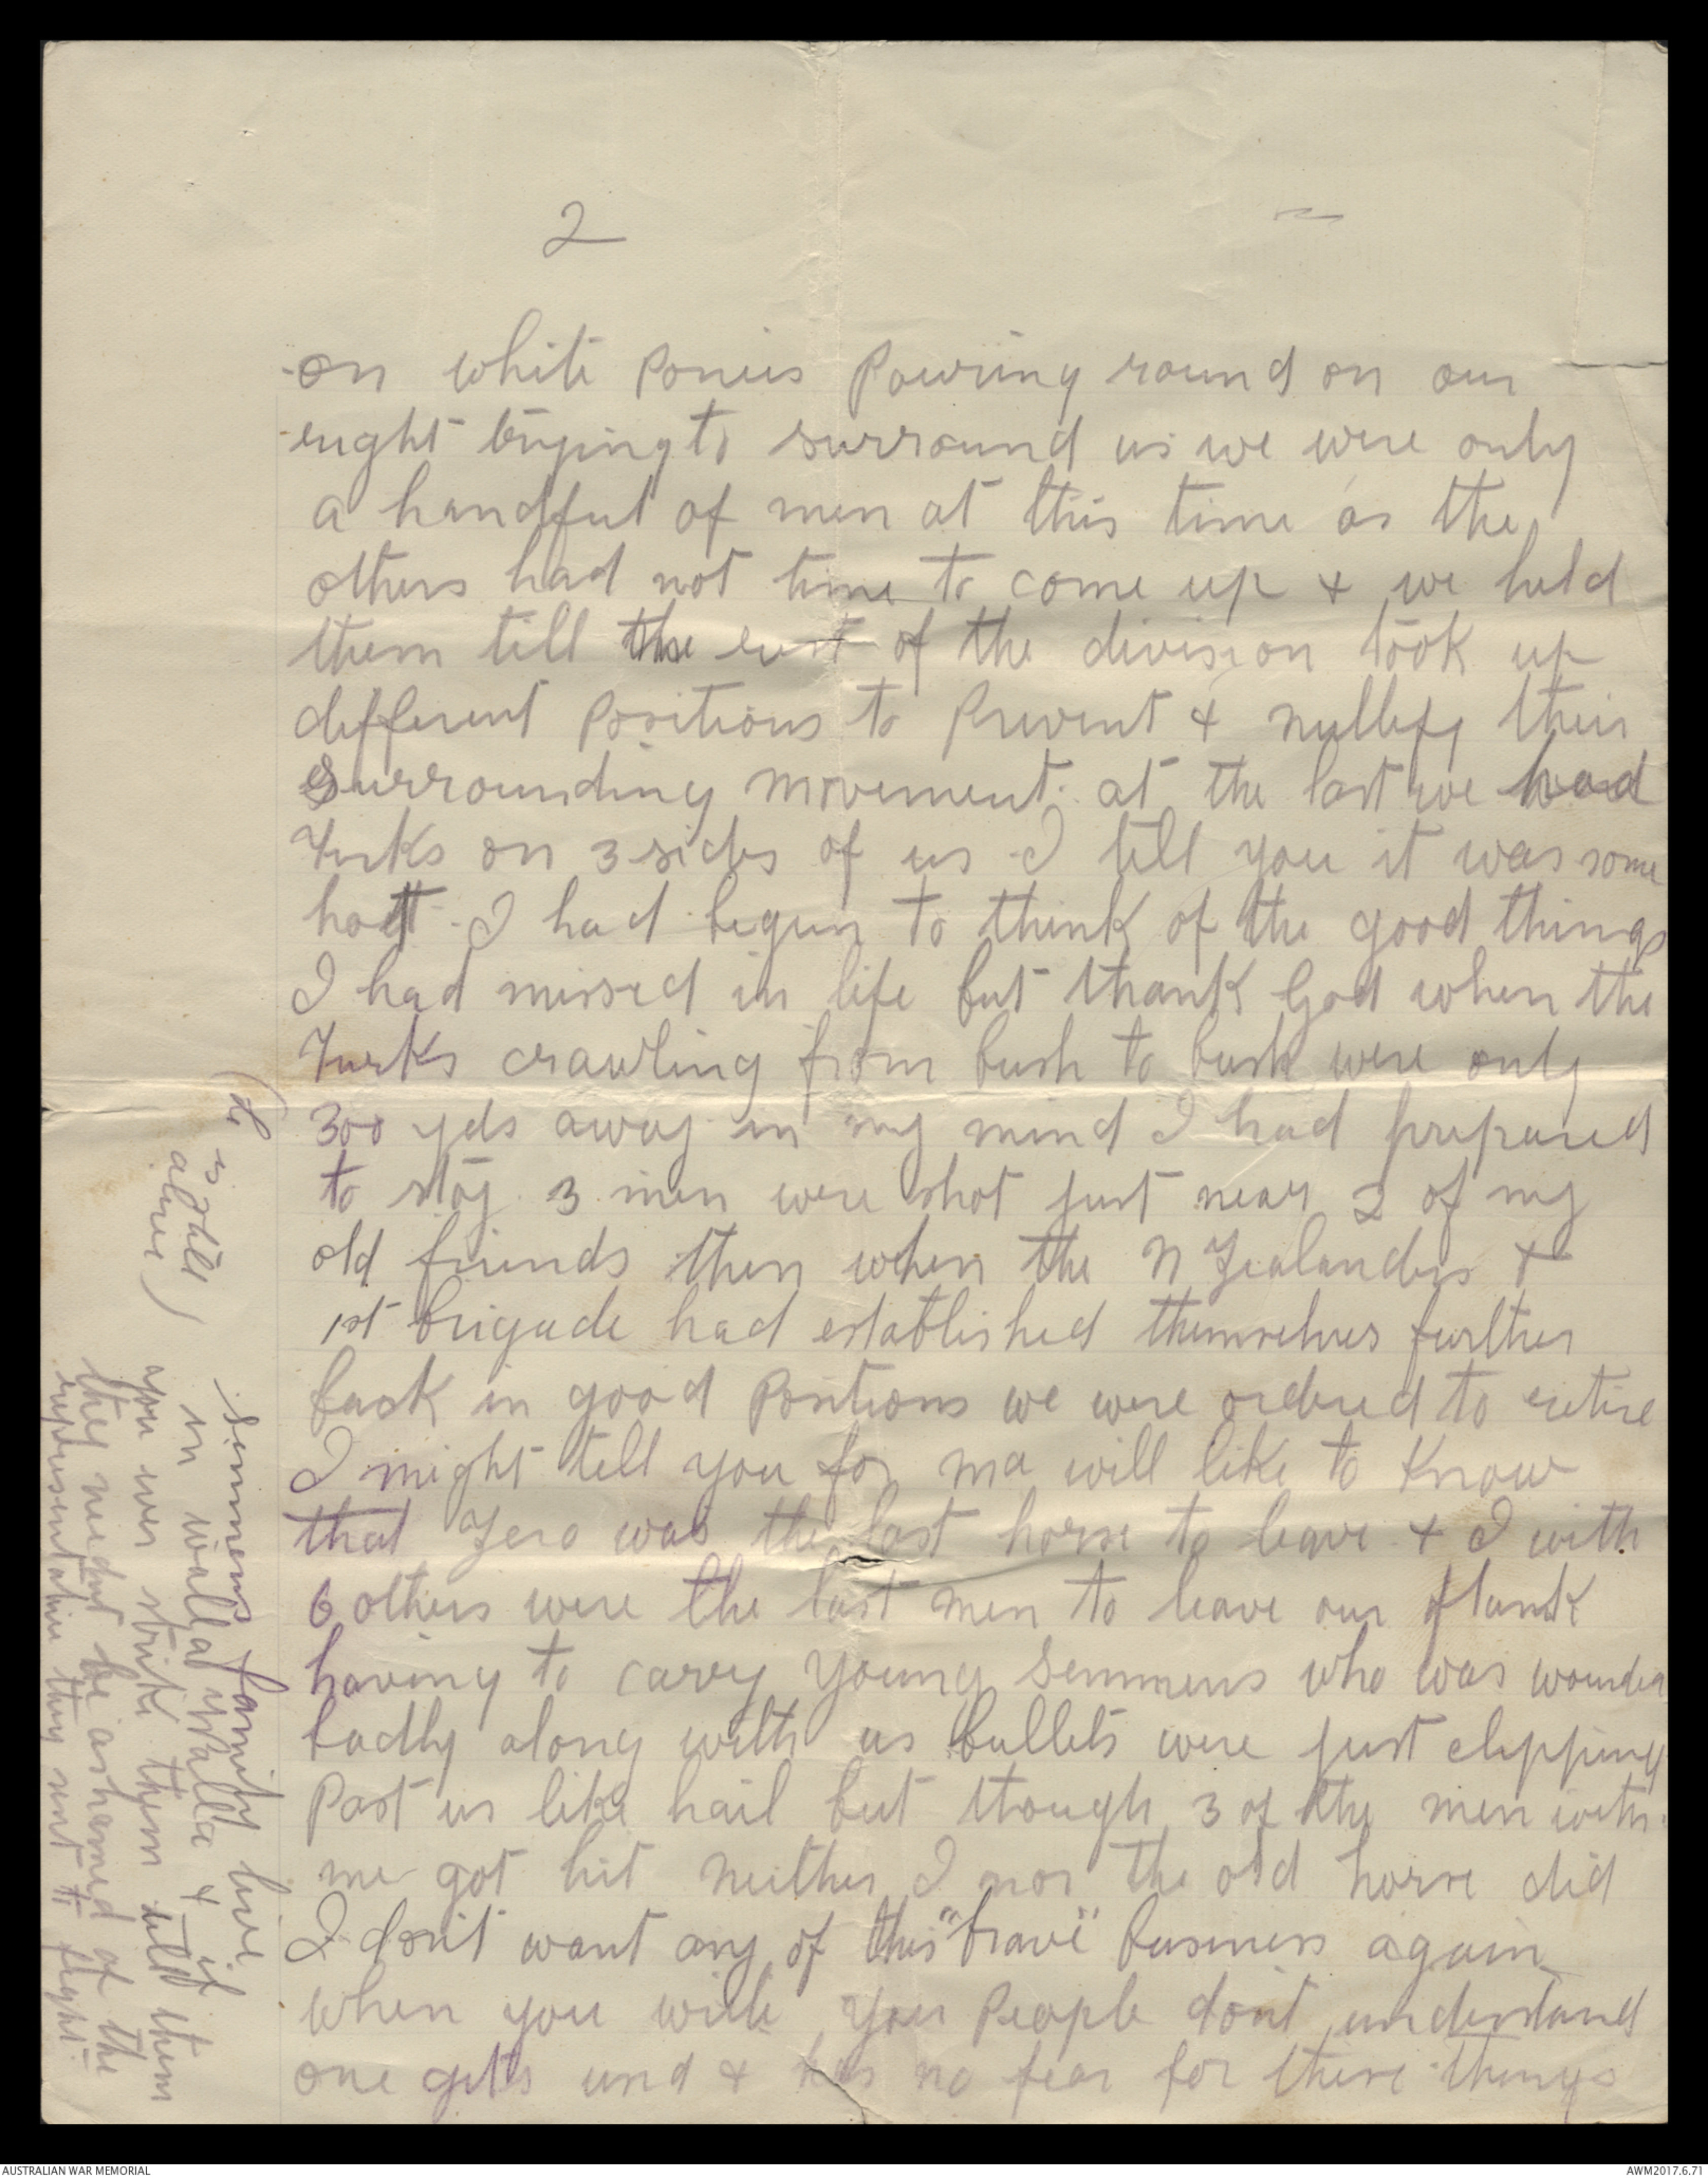 2
on white ponies pouring round on our
right trying to surround us we were only
a handful of men at this time as the
others had not time to come up & we held
them till the rest of the division took up
different positions to prevent & nullify their
Surrounding movement. at the last we had
Turks on 3 sides of us I tell you it was some
hott. I had begun to think of the good things
I had missed in life but thank God when the
Turks crawling from bush to bush were only
300 yds away in my mind I had prepared
to stay. 3 men were shot just near 2 of my
old friends then when the N Zealanders &
1st brigade had established themselves further
back in good positions we were ordered to retire
I might tell you for ma will like to know
that Zero was the last horse to leave & I with
6 others were the last men to leave our flank
having to carry young Semmens who was wounded
badly along with us bullets were just clipping
past us like hail but though 3 of the men with
me got hit neither I nor the old horse did
I don't want any of this "brave" business again
when you write, you people don't understand
one gets used & has no fear for these things
(he
is still
alive)
Semmens family live
in walla walla & if
you ever strike them tell them
they neednt be ashamed of the
representative they sent to fight.
AUSTRALIAN WAR MEMORIAL
AWM2017.6.71